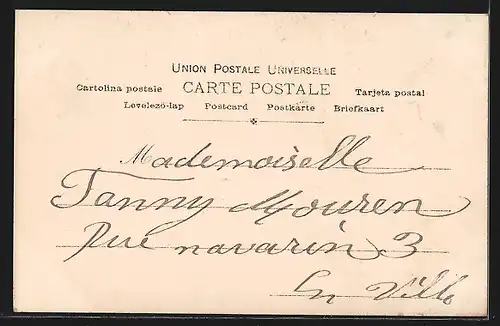 UNION POSTALE UNIVERSELLE
Cartolina postale CARTE POSTALE Tarjeta postal
Levelező-lap Postcard Postkarte Briefkaart
Mademoiselle
Fanny Mouren
Rue navarin 3
En Ville